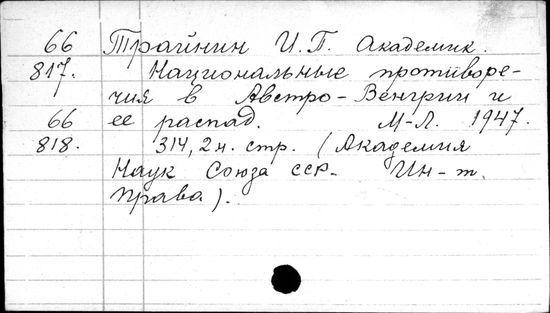 66 Трайнин И.П. Академик.
817. Национальные противоре-
чия в Австро-Венгрии и
66 ее распад. М-Л. 1947.
818. 314, 2 н. стр. (Академия
Наук Союза ССР. Ин-т.
Права).